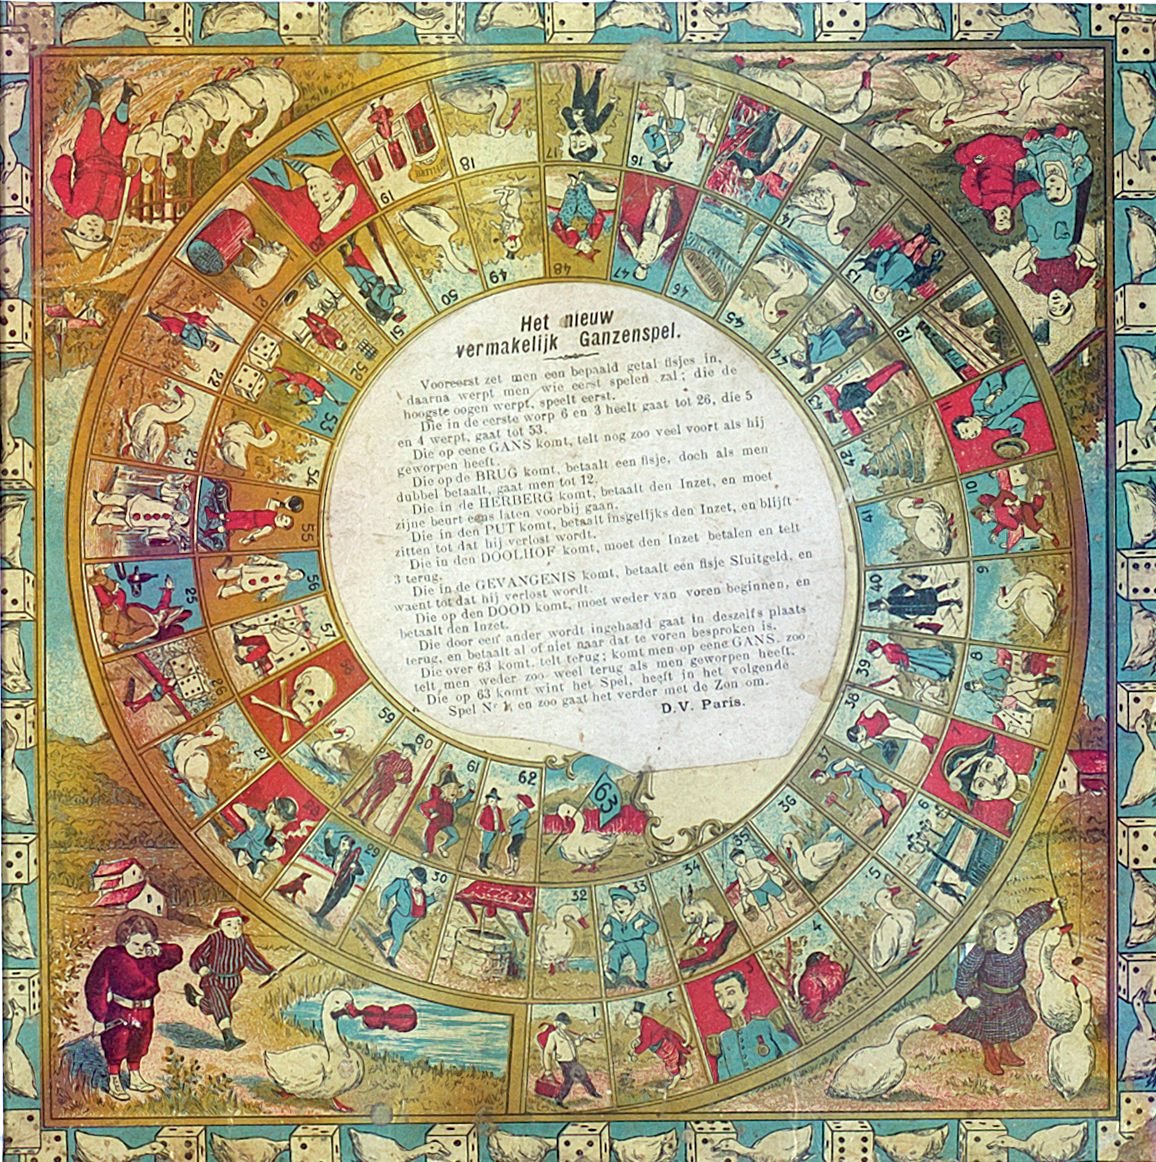 Het nieuw
vermakelijk Ganzenspel.
Vooreerst zet men een bepaald getal fisjes in,
daarna werpt men wie eerst spelen zal; die de
hoogste oogen werpt, speelt eerst.
Die in de eerste worp 6 en 3 heeft gaat tot 26, die 5
en 4 werpt, gaat tot 53.
Die op eene GANS komt, telt nog zoo veel voort als hij
geworpen heeft.
Die op de BRUG komt, betaalt een fisje, doch als men
dubbel betaalt, gaat men tot 12.
Die in de HERBERG komt, betaalt den Inzet, en moet
zijne beurt eens laten voorbij gaan.
Die in den PUT komt, betaalt insgelijks den Inzet, en blijft
zitten tot dat hij verlost wordt.
Die in den DOOLHOF komt, moet den Inzet betalen en telt
3 terug.
Die in de GEVANGENIS komt, betaalt een fisje Sluitgeld, en
waent tot dat hij verlost wordt.
Die op den DOOD komt, moet weder van voren beginnen, en
betaalt den Inzet.
Die door een ander wordt ingehaald gaat in deszelfs plaats
terug, en betaalt al of niet naar dat te voren besproken is.
Die over 63 komt, telt terug; komt men op eene GANS, zoo
telt men weder zoo veel terug als men geworpen heeft.
Die op 63 komt wint het Spel, heeft in het volgende
Spel No 1, en zoo gaat het verder met de Zon om.
D.V. Paris.
1
4
5
6
8
9
10
11
12
13
14
16
17
18
19
21
22
23
25
26
27
29
30
32
33
34
35
36
37
38
39
40
41
42
43
44
45
46
47
48
49
50
51
52
53
54
55
56
57
58
59
60
61
62
63